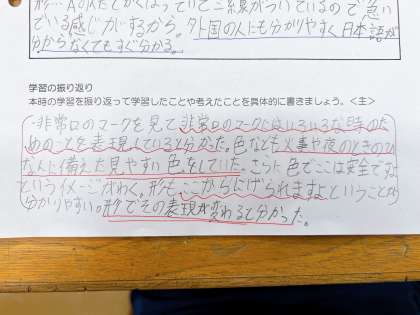 形…人の
でいる感じがするから。外国の人にも分かりやすく日本語が
分からなくてもすぐ分かる。
学習の振り返り
本時の学習を振り返って学習したことや考えたことを具体的に書きましょう。<主>
・非常口のマークを見て非常口のマークにはいろいろな時のた
めのことを表現していると分かった。色なども火事や夜のときのひ
なんに備えた見やすい色をしていた。さらに色でここは安全ですよ
というイメージがわく。形もここからにげられますよということが
分かりやすい。形でその表現が変わると分かった。